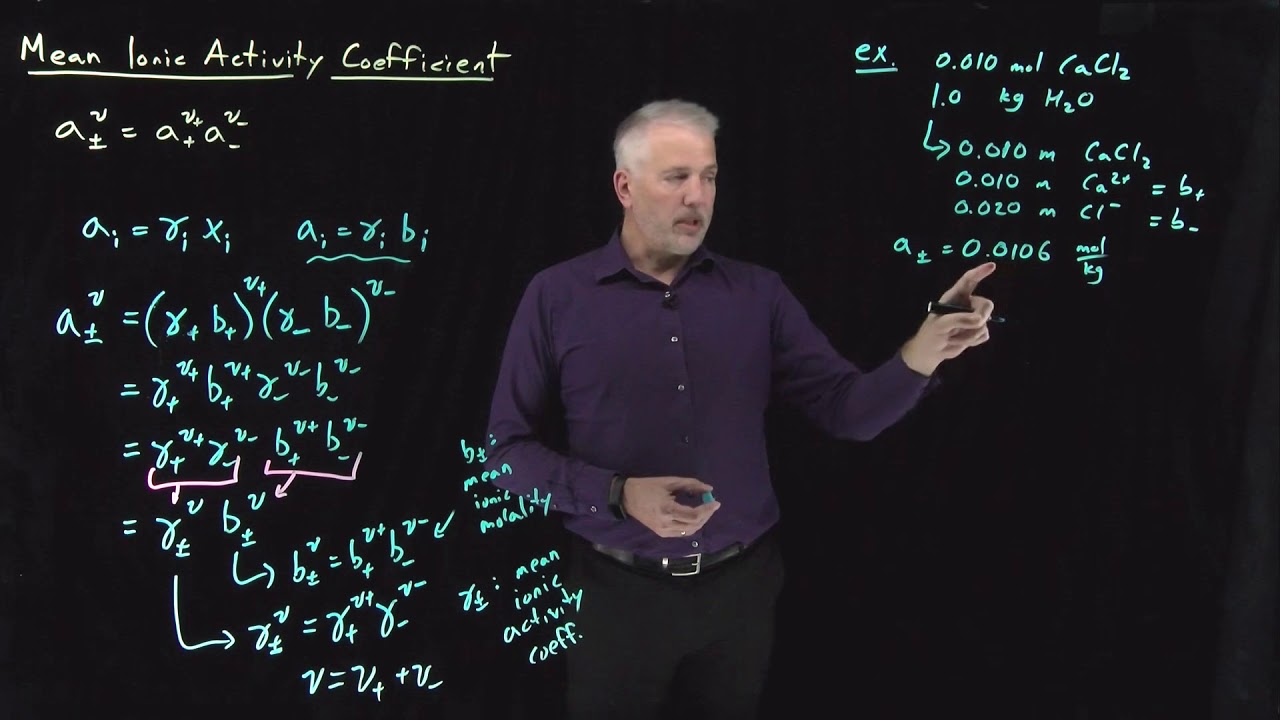 Mean Ionic Activity Coefficient
a±^ν = a₊^ν₊ a₋^ν₋
aᵢ = γᵢ xᵢ    aᵢ = γᵢ bᵢ
a±^ν = (γ₊ b₊)^ν₊ (γ₋ b₋)^ν₋
= γ₊^ν₊ b₊^ν₊ γ₋^ν₋ b₋^ν₋
= γ₊^ν₊ γ₋^ν₋ b₊^ν₊ b₋^ν₋
= γ±^ν b±^ν
b±^ν = b₊^ν₊ b₋^ν₋
γ±^ν = γ₊^ν₊ γ₋^ν₋
ν = ν₊ + ν₋
b±:
mean
ionic
molality
γ±: mean
ionic
activity
coeff.
ex. 0.010 mol CaCl₂
1.0 kg H₂O
→ 0.010 m CaCl₂
0.010 m Ca²⁺ = b₊
0.020 m Cl⁻ = b₋
a± = 0.0106 mol/kg